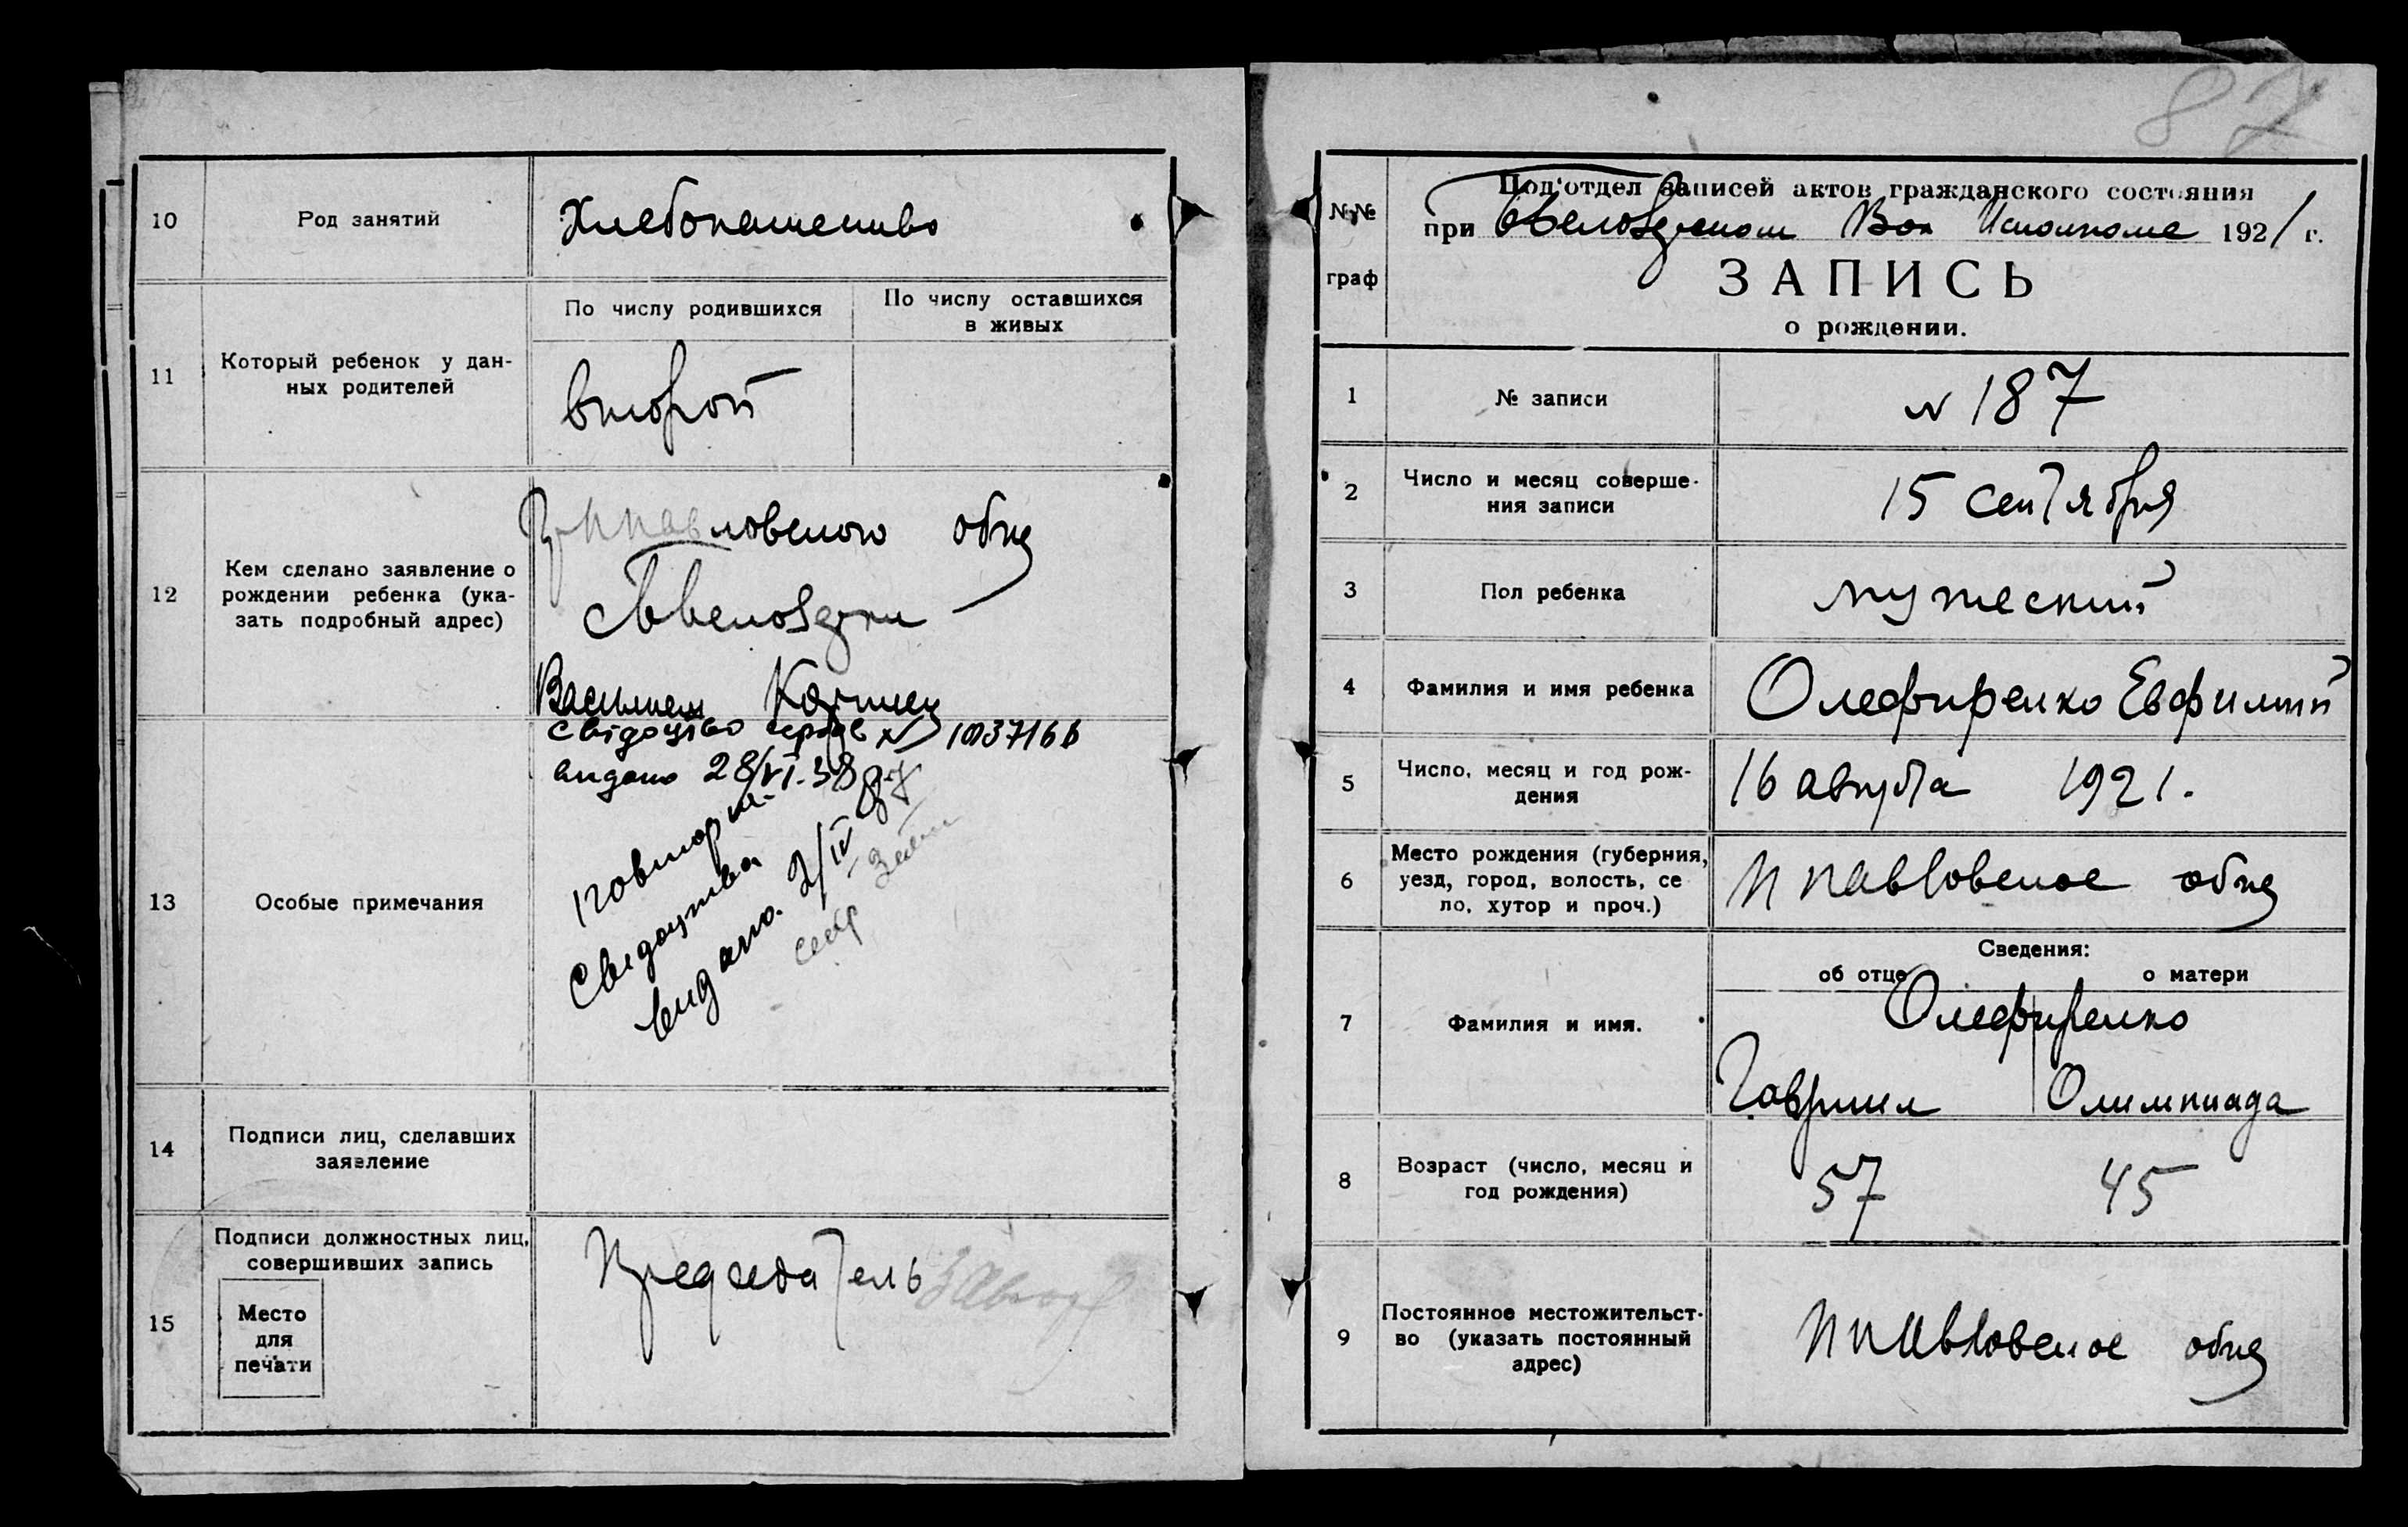 10
Род занятий
Хлебопашенство
11
Который ребенок у дан-
ных родителей
По числу родившихся
По числу оставшихся
в живых
второй
12
Кем сделано заявление о
рождении ребенка (ука-
зать подробный адрес)
общ
Василием
13
Особые примечания
свідоцтво серія № 1037166
видано 28/VI-38
повторн
Свідоцтва
видано. 2/IV
14
Подписи лиц, сделавших
заявление
15
Подписи должностных лиц,
совершивших запись
Место
для
печати
Председатель
87
№№
граф
Под'отдел записей актов гражданского состояния
при Вол Исполкоме 1921 г.
ЗАПИСЬ
о рождении.
1
№ записи
N 187
2
Число и месяц соверше-
ния записи
15 сентября
3
Пол ребенка
мужеский
4
Фамилия и имя ребенка
Олефиренко Евфимий
5
Число, месяц и год рож-
дения
16 августа 1921.
6
Место рождения (губерния,
уезд, город, волость, се
ло, хутор и проч.)
Н павловское общ
7
Фамилия и имя.
Сведения:
об отце
о матери
Олефиренко
Гавриил
Олимпиада
8
Возраст (число, месяц и
год рождения)
57
45
9
Постоянное местожительст-
во (указать постоянный
адрес)
Н павловское общ